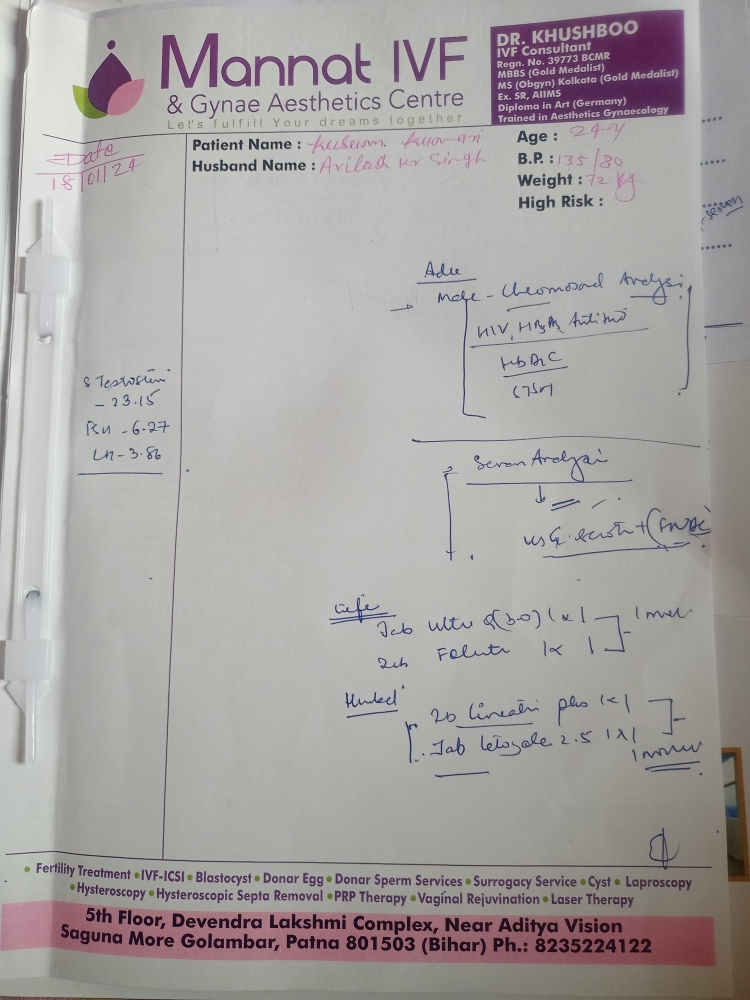 Mannat IVF
& Gynae Aesthetics Centre
Let's fulfill Your dreams together
DR. KHUSHBOO
IVF Consultant
Regn. No. 39773 BCMR
MBBS (Gold Medalist)
MS (Obgyn) Kolkata (Gold Medalist)
Ex. SR, AIIMS
Diploma in Art (Germany)
Trained in Aesthetics Gynaecology
Date
18/01/24
Patient Name : Kumari
Husband Name : Kr Singh
Age : 24 y
B.P. : 135/80
Weight : 72 kg
High Risk :
Male - Chromosomal Analysis
HIV, HBsAg,
HbA1C
S Testosteron
- 23.15
- 6.27
LH - 3.86
Semen Analysis
Tab 1x1
1x1
Husband
plus 1x1
Tab Letozole 2.5 1x1
Fertility Treatment • IVF-ICSI • Blastocyst • Donar Egg • Donar Sperm Services • Surrogacy Service • Cyst • Laproscopy
• Hysteroscopy • Hysteroscopic Septa Removal • PRP Therapy • Vaginal Rejuvination • Laser Therapy
5th Floor, Devendra Lakshmi Complex, Near Aditya Vision
Saguna More Golambar, Patna 801503 (Bihar) Ph.: 8235224122